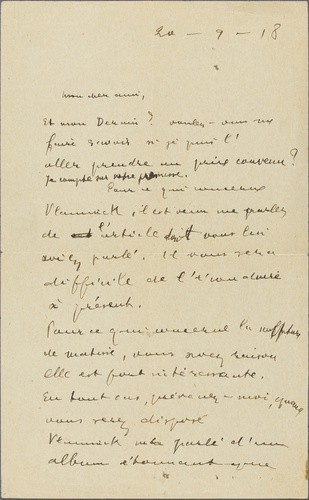 20 - 9 - 18
mon cher ami,
Et mon Derain? voulez-vous me
faire savoir si je puis l'
aller prendre au prix convenu?
Je compte sur votre promesse.
Pour ce qui concerne
Vlaminck, il est venu me parler
de l'article dont vous lui
aviez parlé. Il vous sera
difficile de l'éconduire
à présent.
Pour ce qui concerne la sculpture
de Matisse, vous avez raison
elle est fort intéressante.
En tout cas, prévenez-moi, quand
vous serez disposé
Vlaminck m'a parlé d'un
album étonnant que